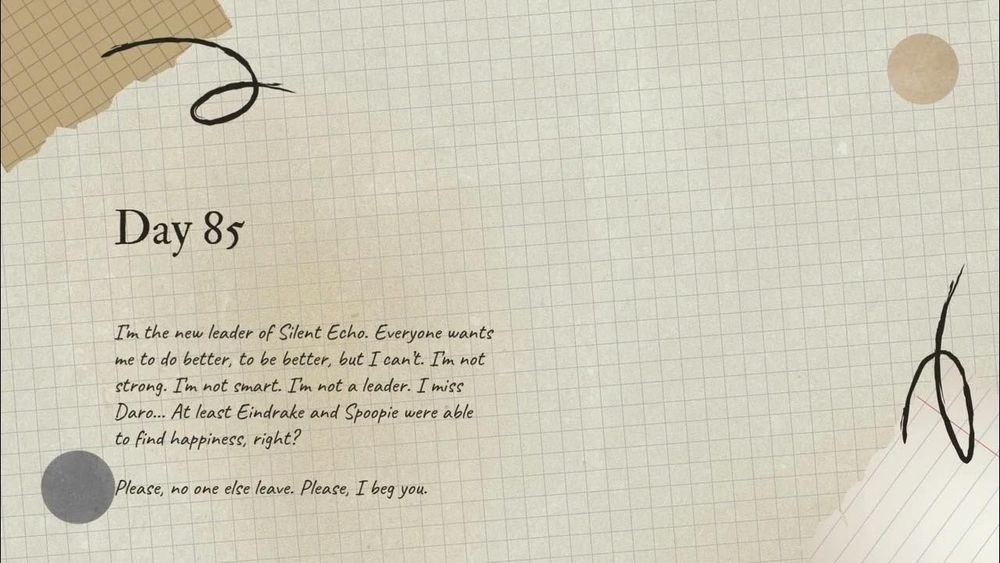 Day 85
I'm the new leader of Silent Echo. Everyone wants
me to do better, to be better, but I can't. I'm not
strong. I'm not smart. I'm not a leader. I miss
Daro... At least Eindrake and Spoopie were able
to find happiness, right?
Please, no one else leave. Please, I beg you.